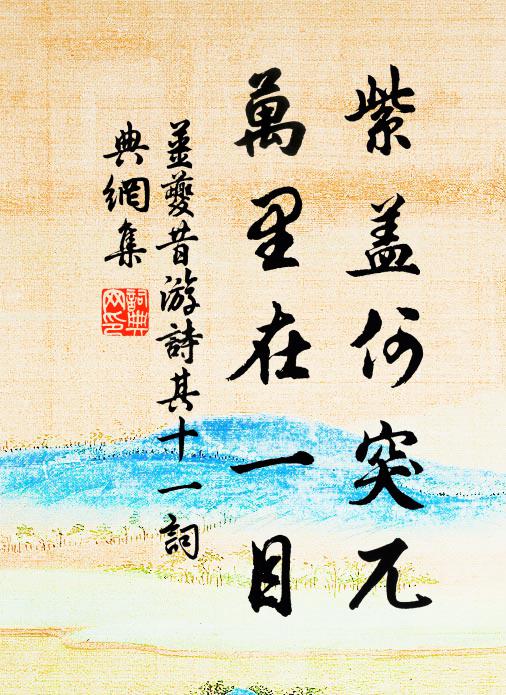 紫盖何突兀
萬里在一目
姜夔昔游詩其十一詞
典網集
詞典網印